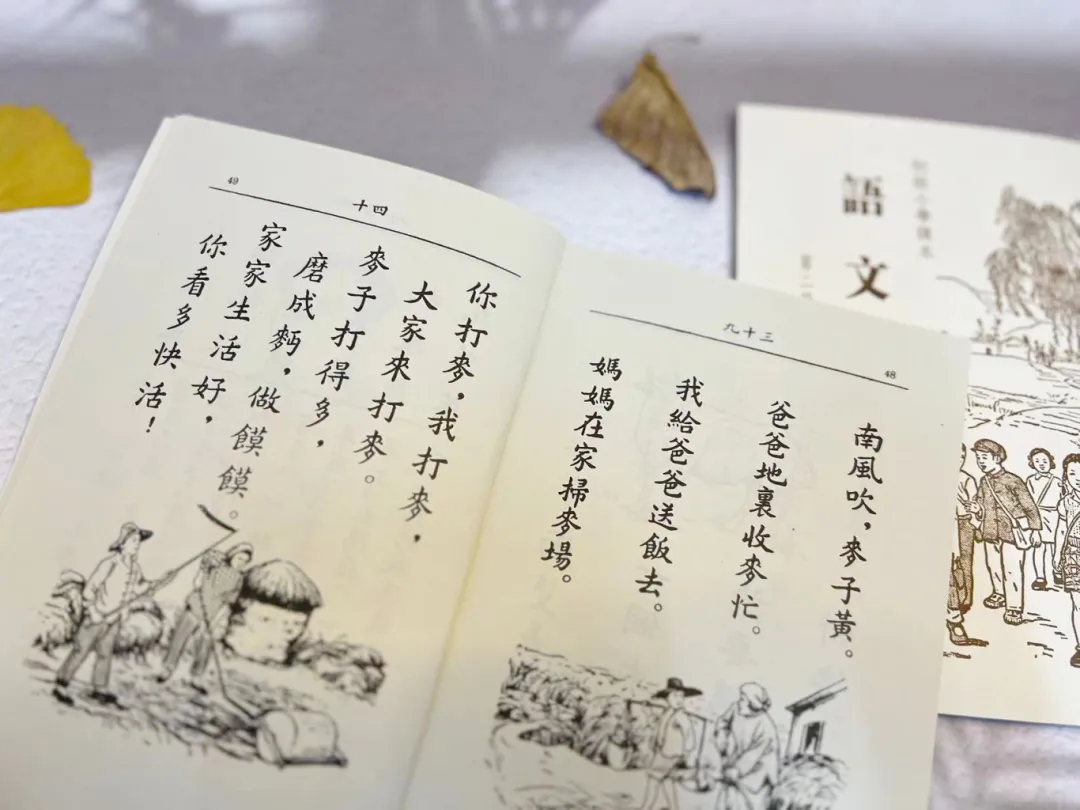 48
三十九
南風吹，麥子黃。
爸爸地裏收麥忙。
我給爸爸送飯去。
媽媽在家掃麥場。
49
四十
你打麥，我打麥，
大家來打麥。
麥子打得多，
磨成麪，做饃饃。
家家生活好，
你看多快活！
初級小學課本
語文